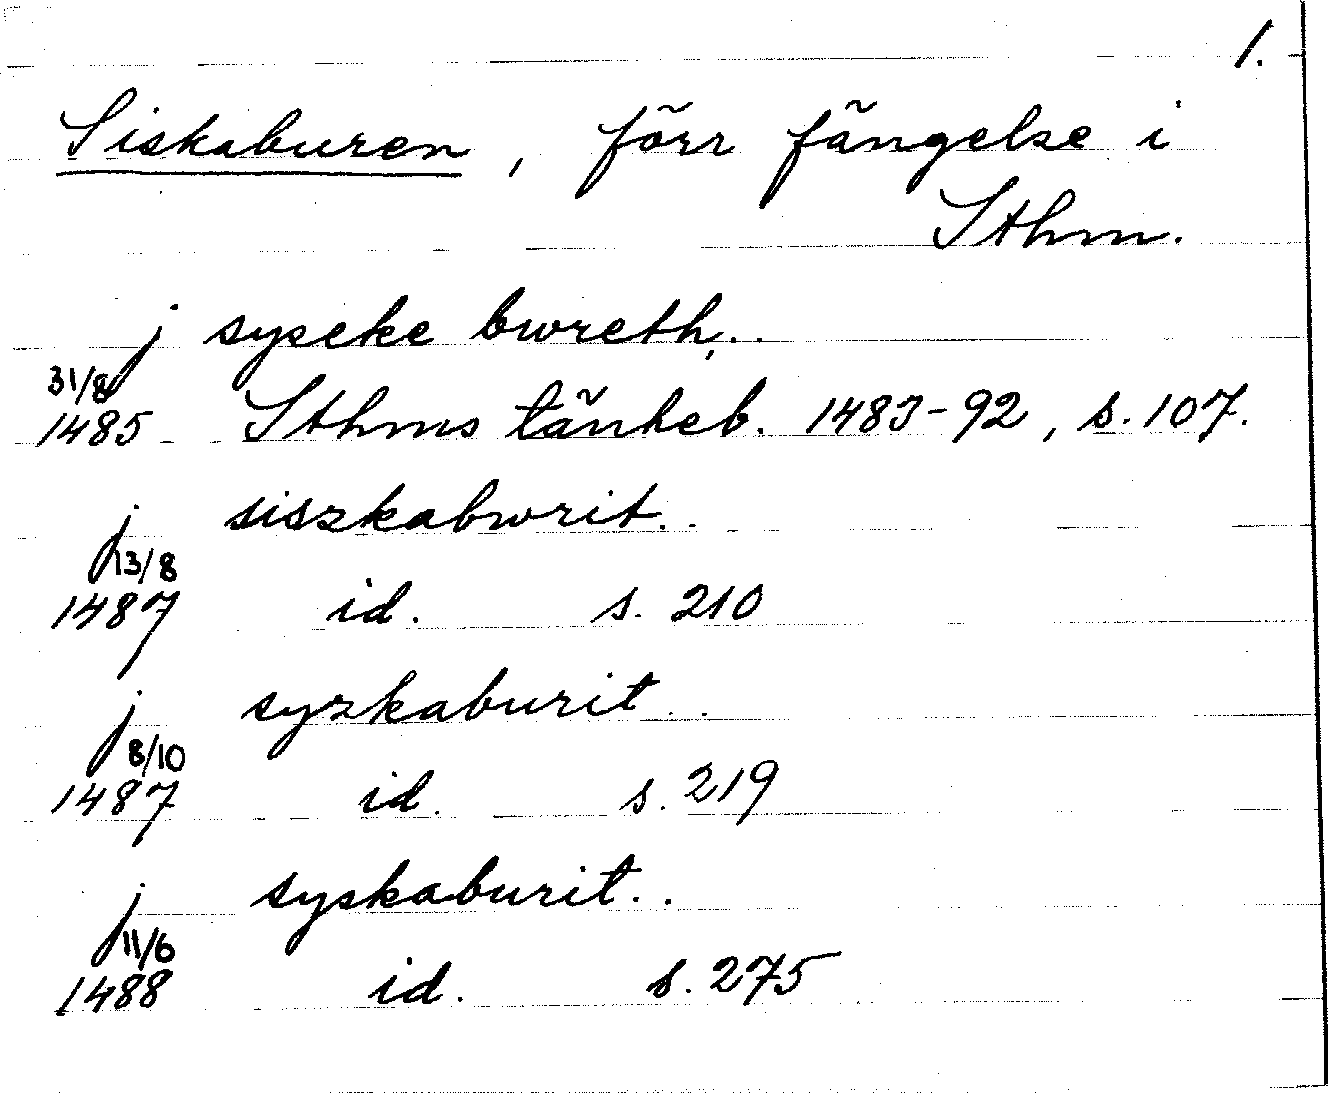 1.
Siskaburen, förr fängelse i
Sthm.
j syseke bwreth..
31/8
1485 Sthms tänkeb. 1483-92, s. 107.
j siszkabwrit..
13/8
1487 id. s. 210
j syzkaburit..
8/10
1487 id. s. 219
j syskaburit..
11/6
1488 id. s. 275